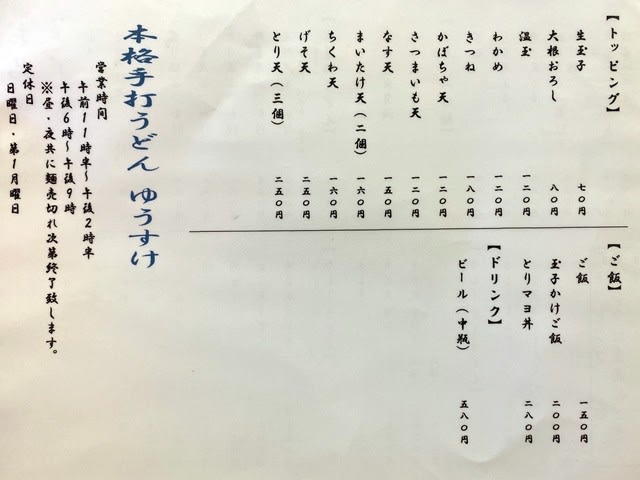 【トッピング】
生玉子 七〇円
大根おろし 八〇円
温玉 一二〇円
わかめ 一二〇円
きつね 一八〇円
かぼちゃ天 一二〇円
さつまいも天 一二〇円
なす天 一五〇円
まいたけ天（二個） 一六〇円
ちくわ天 一六〇円
げそ天 二五〇円
とり天（三個） 二五〇円
【ご飯】
ご飯 一五〇円
玉子かけご飯 二〇〇円
とりマヨ丼 二八〇円
【ドリンク】
ビール（中瓶） 五八〇円
本格手打うどん ゆうすけ
営業時間
午前11時半～午後2時半
午後6時～午後9時
※昼・夜共に麺売切れ次第終了致します。
定休日
日曜日・第1月曜日